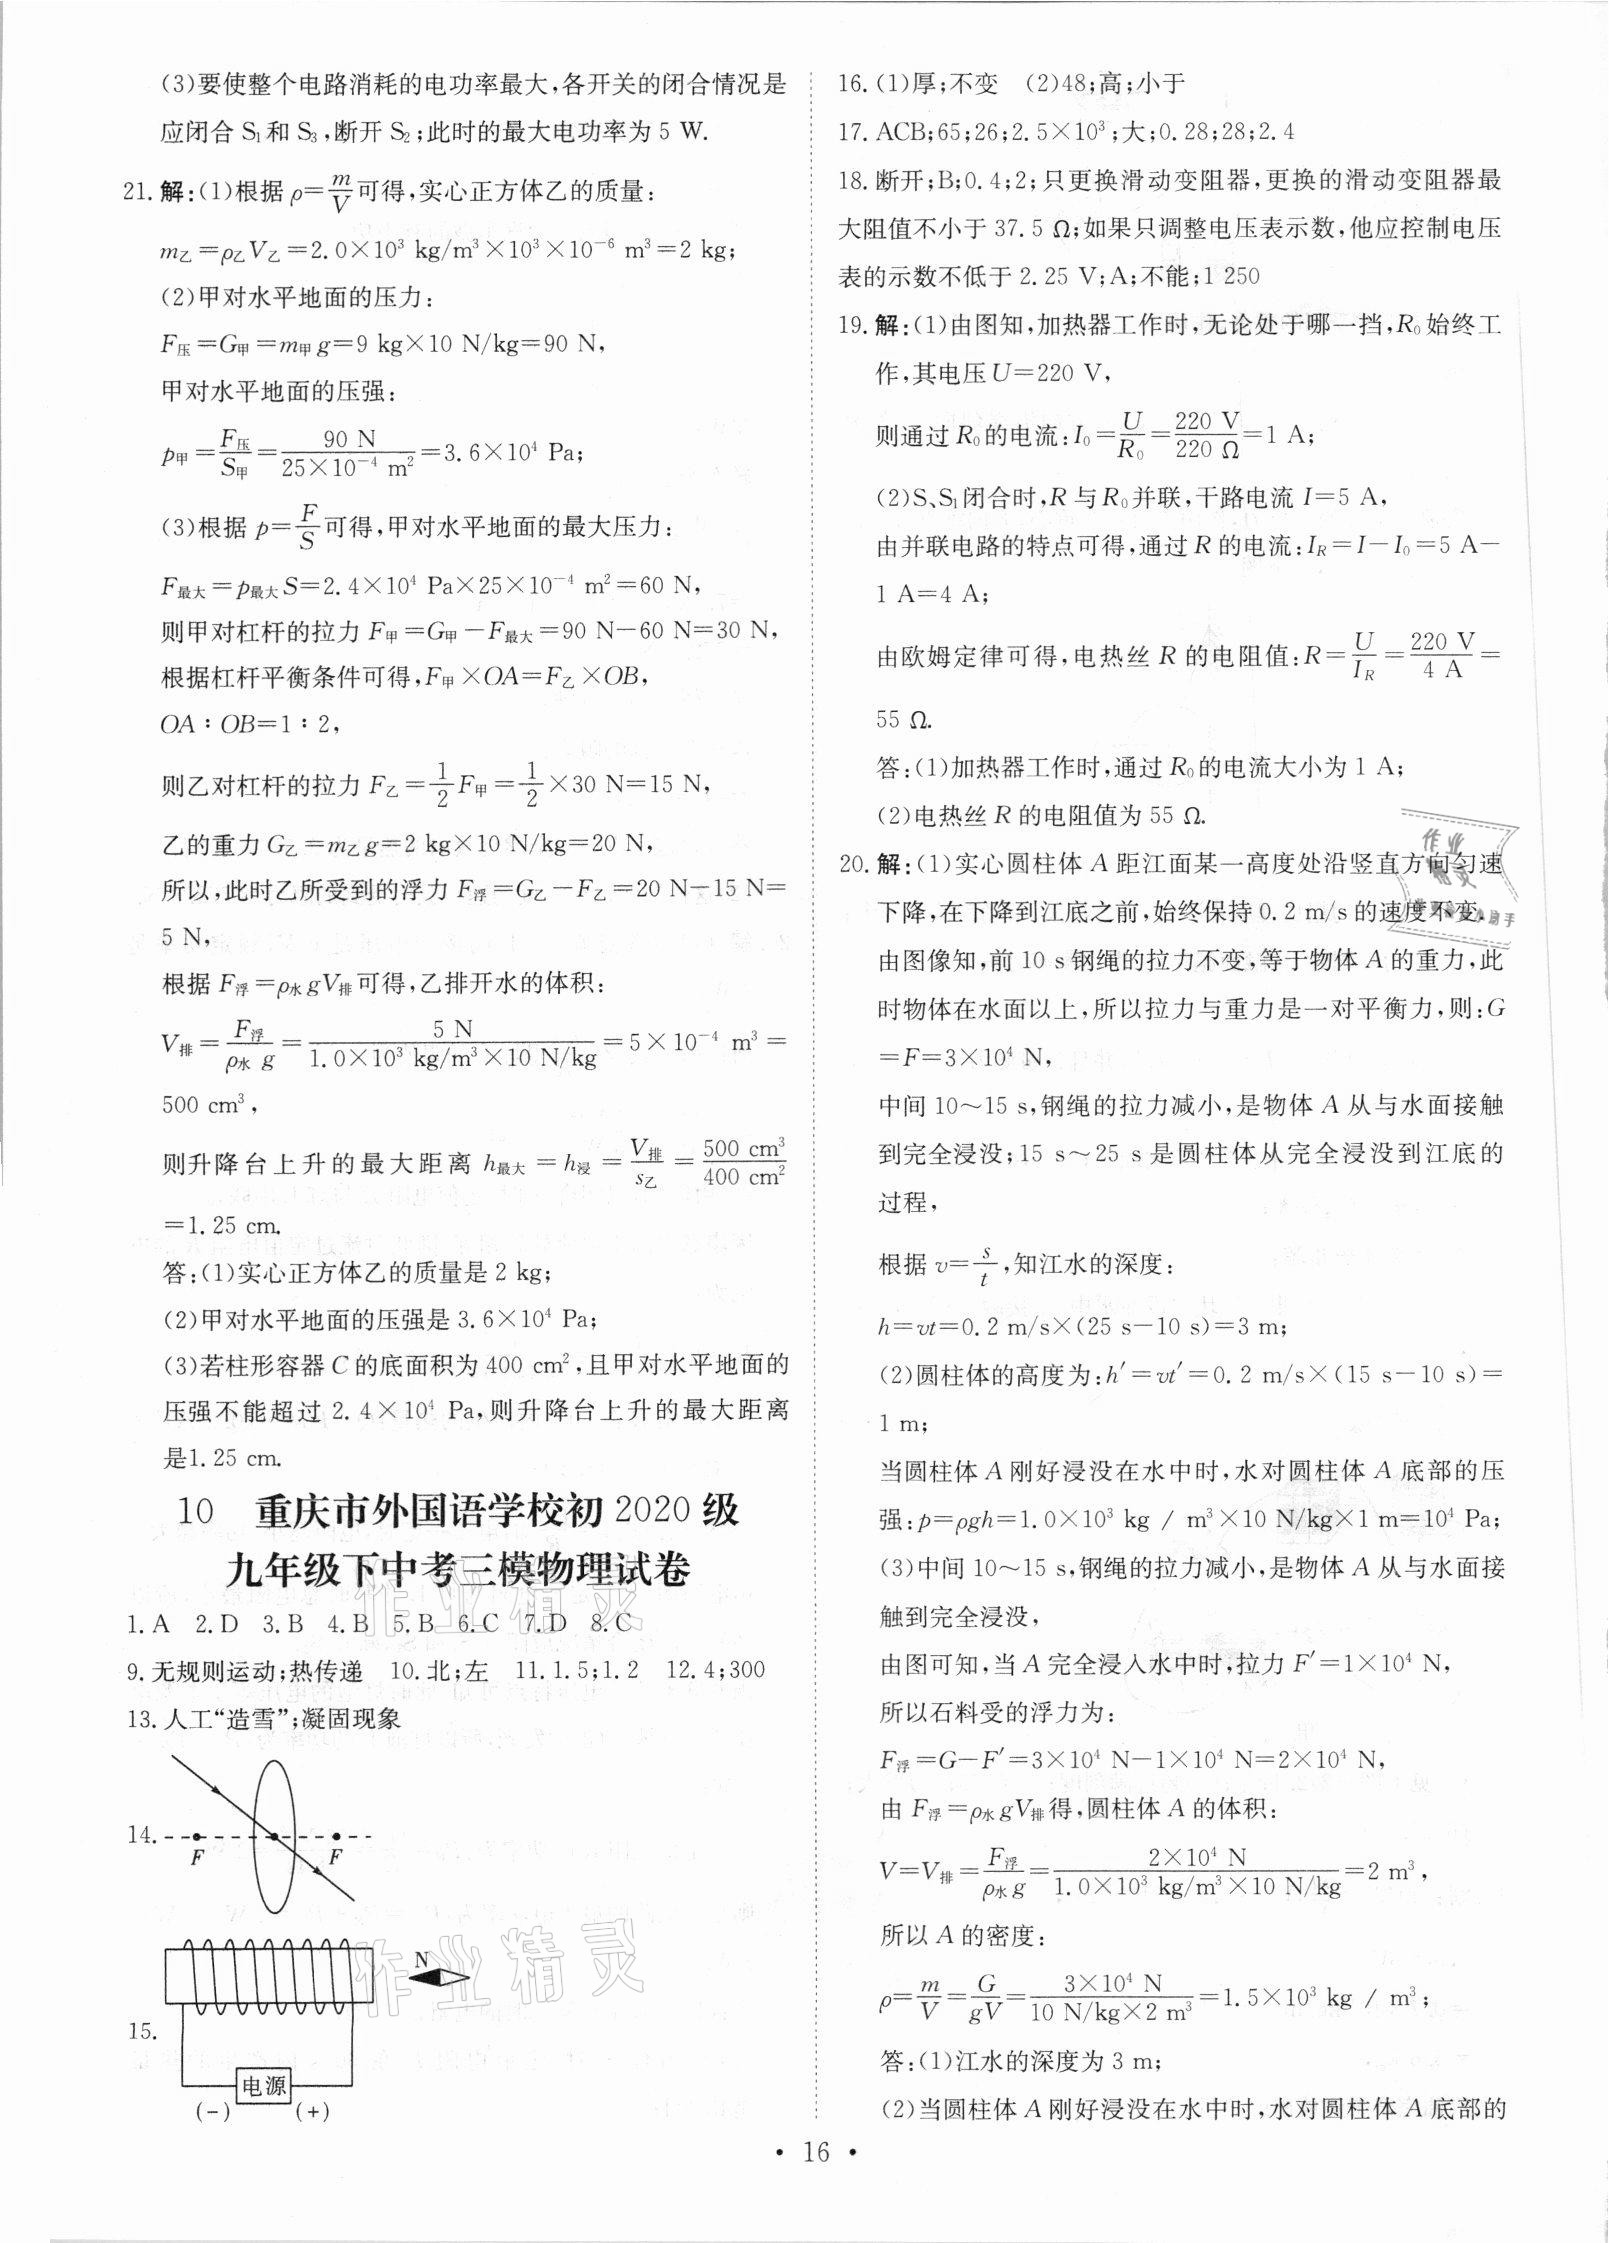 (3)要使整个电路消耗的电功率最大,各开关的闭合情况是
应闭合 S₁和 S₃,断开 S₂;此时的最大电功率为 5 W.
21. 解:(1)根据 ρ=m/V可得,实心正方体乙的质量:
m乙=ρ乙V乙=2.0×10³ kg/m³×10³×10⁻⁶ m³=2 kg;
(2)甲对水平地面的压力:
F压=G甲=m甲g=9 kg×10 N/kg=90 N,
甲对水平地面的压强:
p甲=F压/S甲=90 N/(25×10⁻⁴ m²)=3.6×10⁴ Pa;
(3)根据 p=F/S可得,甲对水平地面的最大压力:
F最大=p最大S=2.4×10⁴ Pa×25×10⁻⁴ m²=60 N,
则甲对杠杆的拉力 F甲=G甲-F最大=90 N-60 N=30 N,
根据杠杆平衡条件可得,F甲×OA=F乙×OB,
OA∶OB=1∶2,
则乙对杠杆的拉力 F乙=1/2F甲=1/2×30 N=15 N,
乙的重力 G乙=m乙g=2 kg×10 N/kg=20 N,
所以,此时乙所受到的浮力 F浮=G乙-F乙=20 N-15 N=
5 N,
根据 F浮=ρ水gV排可得,乙排开水的体积:
V排=F浮/(ρ水g)=5 N/(1.0×10³ kg/m³×10 N/kg)=5×10⁻⁴ m³=
500 cm³,
则升降台上升的最大距离 h最大=h浸=V排/s乙=500 cm³/400 cm²
=1.25 cm.
答:(1)实心正方体乙的质量是 2 kg;
(2)甲对水平地面的压强是 3.6×10⁴ Pa;
(3)若柱形容器 C 的底面积为 400 cm²,且甲对水平地面的
压强不能超过 2.4×10⁴ Pa,则升降台上升的最大距离
是1.25 cm.
10 重庆市外国语学校初 2020 级
九年级下中考三模物理试卷
1. A 2. D 3. B 4. B 5. B 6. C 7. D 8. C
9. 无规则运动;热传递 10. 北;左 11. 1.5;1.2 12. 4;300
13. 人工“造雪”;凝固现象
14.
F F
15.
N
电源
(-) (+)
16. (1)厚;不变 (2)48;高;小于
17. ACB;65;26;2.5×10³;大;0.28;28;2.4
18. 断开;B;0.4;2;只更换滑动变阻器,更换的滑动变阻器最
大阻值不小于 37.5 Ω;如果只调整电压表示数,他应控制电压
表的示数不低于 2.25 V;A;不能;1 250
19. 解:(1)由图知,加热器工作时,无论处于哪一挡,R₀始终工
作,其电压U=220 V,
则通过 R₀的电流:I₀=U/R₀=220 V/220 Ω=1 A;
(2)S、S₁闭合时,R 与 R₀并联,干路电流 I=5 A,
由并联电路的特点可得,通过 R 的电流:I_R=I-I₀=5 A-
1 A=4 A;
由欧姆定律可得,电热丝 R 的电阻值:R=U/I_R=220 V/4 A=
55 Ω.
答:(1)加热器工作时,通过 R₀的电流大小为 1 A;
(2)电热丝 R 的电阻值为 55 Ω.
20. 解:(1)实心圆柱体 A 距江面某一高度处沿竖直方向匀速
下降,在下降到江底之前,始终保持 0.2 m/s 的速度不变.
由图像知,前 10 s 钢绳的拉力不变,等于物体 A 的重力,此
时物体在水面以上,所以拉力与重力是一对平衡力,则:G
=F=3×10⁴ N,
中间 10～15 s,钢绳的拉力减小,是物体 A 从与水面接触
到完全浸没;15 s～25 s 是圆柱体从完全浸没到江底的
过程,
根据 v=s/t,知江水的深度:
h=vt=0.2 m/s×(25 s-10 s)=3 m;
(2)圆柱体的高度为:h′=vt′=0.2 m/s×(15 s-10 s)=
1 m;
当圆柱体 A 刚好浸没在水中时,水对圆柱体 A 底部的压
强:p=ρgh=1.0×10³ kg / m³×10 N/kg×1 m=10⁴ Pa;
(3)中间 10～15 s,钢绳的拉力减小,是物体 A 从与水面接
触到完全浸没,
由图可知,当 A 完全浸入水中时,拉力 F′=1×10⁴ N,
所以石料受的浮力为:
F浮=G-F′=3×10⁴ N-1×10⁴ N=2×10⁴ N,
由 F浮=ρ水gV排得,圆柱体 A 的体积:
V=V排=F浮/(ρ水g)=2×10⁴ N/(1.0×10³ kg/m³×10 N/kg)=2 m³,
所以 A 的密度:
ρ=m/V=G/(gV)=3×10⁴ N/(10 N/kg×2 m³)=1.5×10³ kg / m³;
答:(1)江水的深度为 3 m;
(2)当圆柱体 A 刚好浸没在水中时,水对圆柱体 A 底部的
• 16 •
作业精灵
作业精灵
作业
精灵